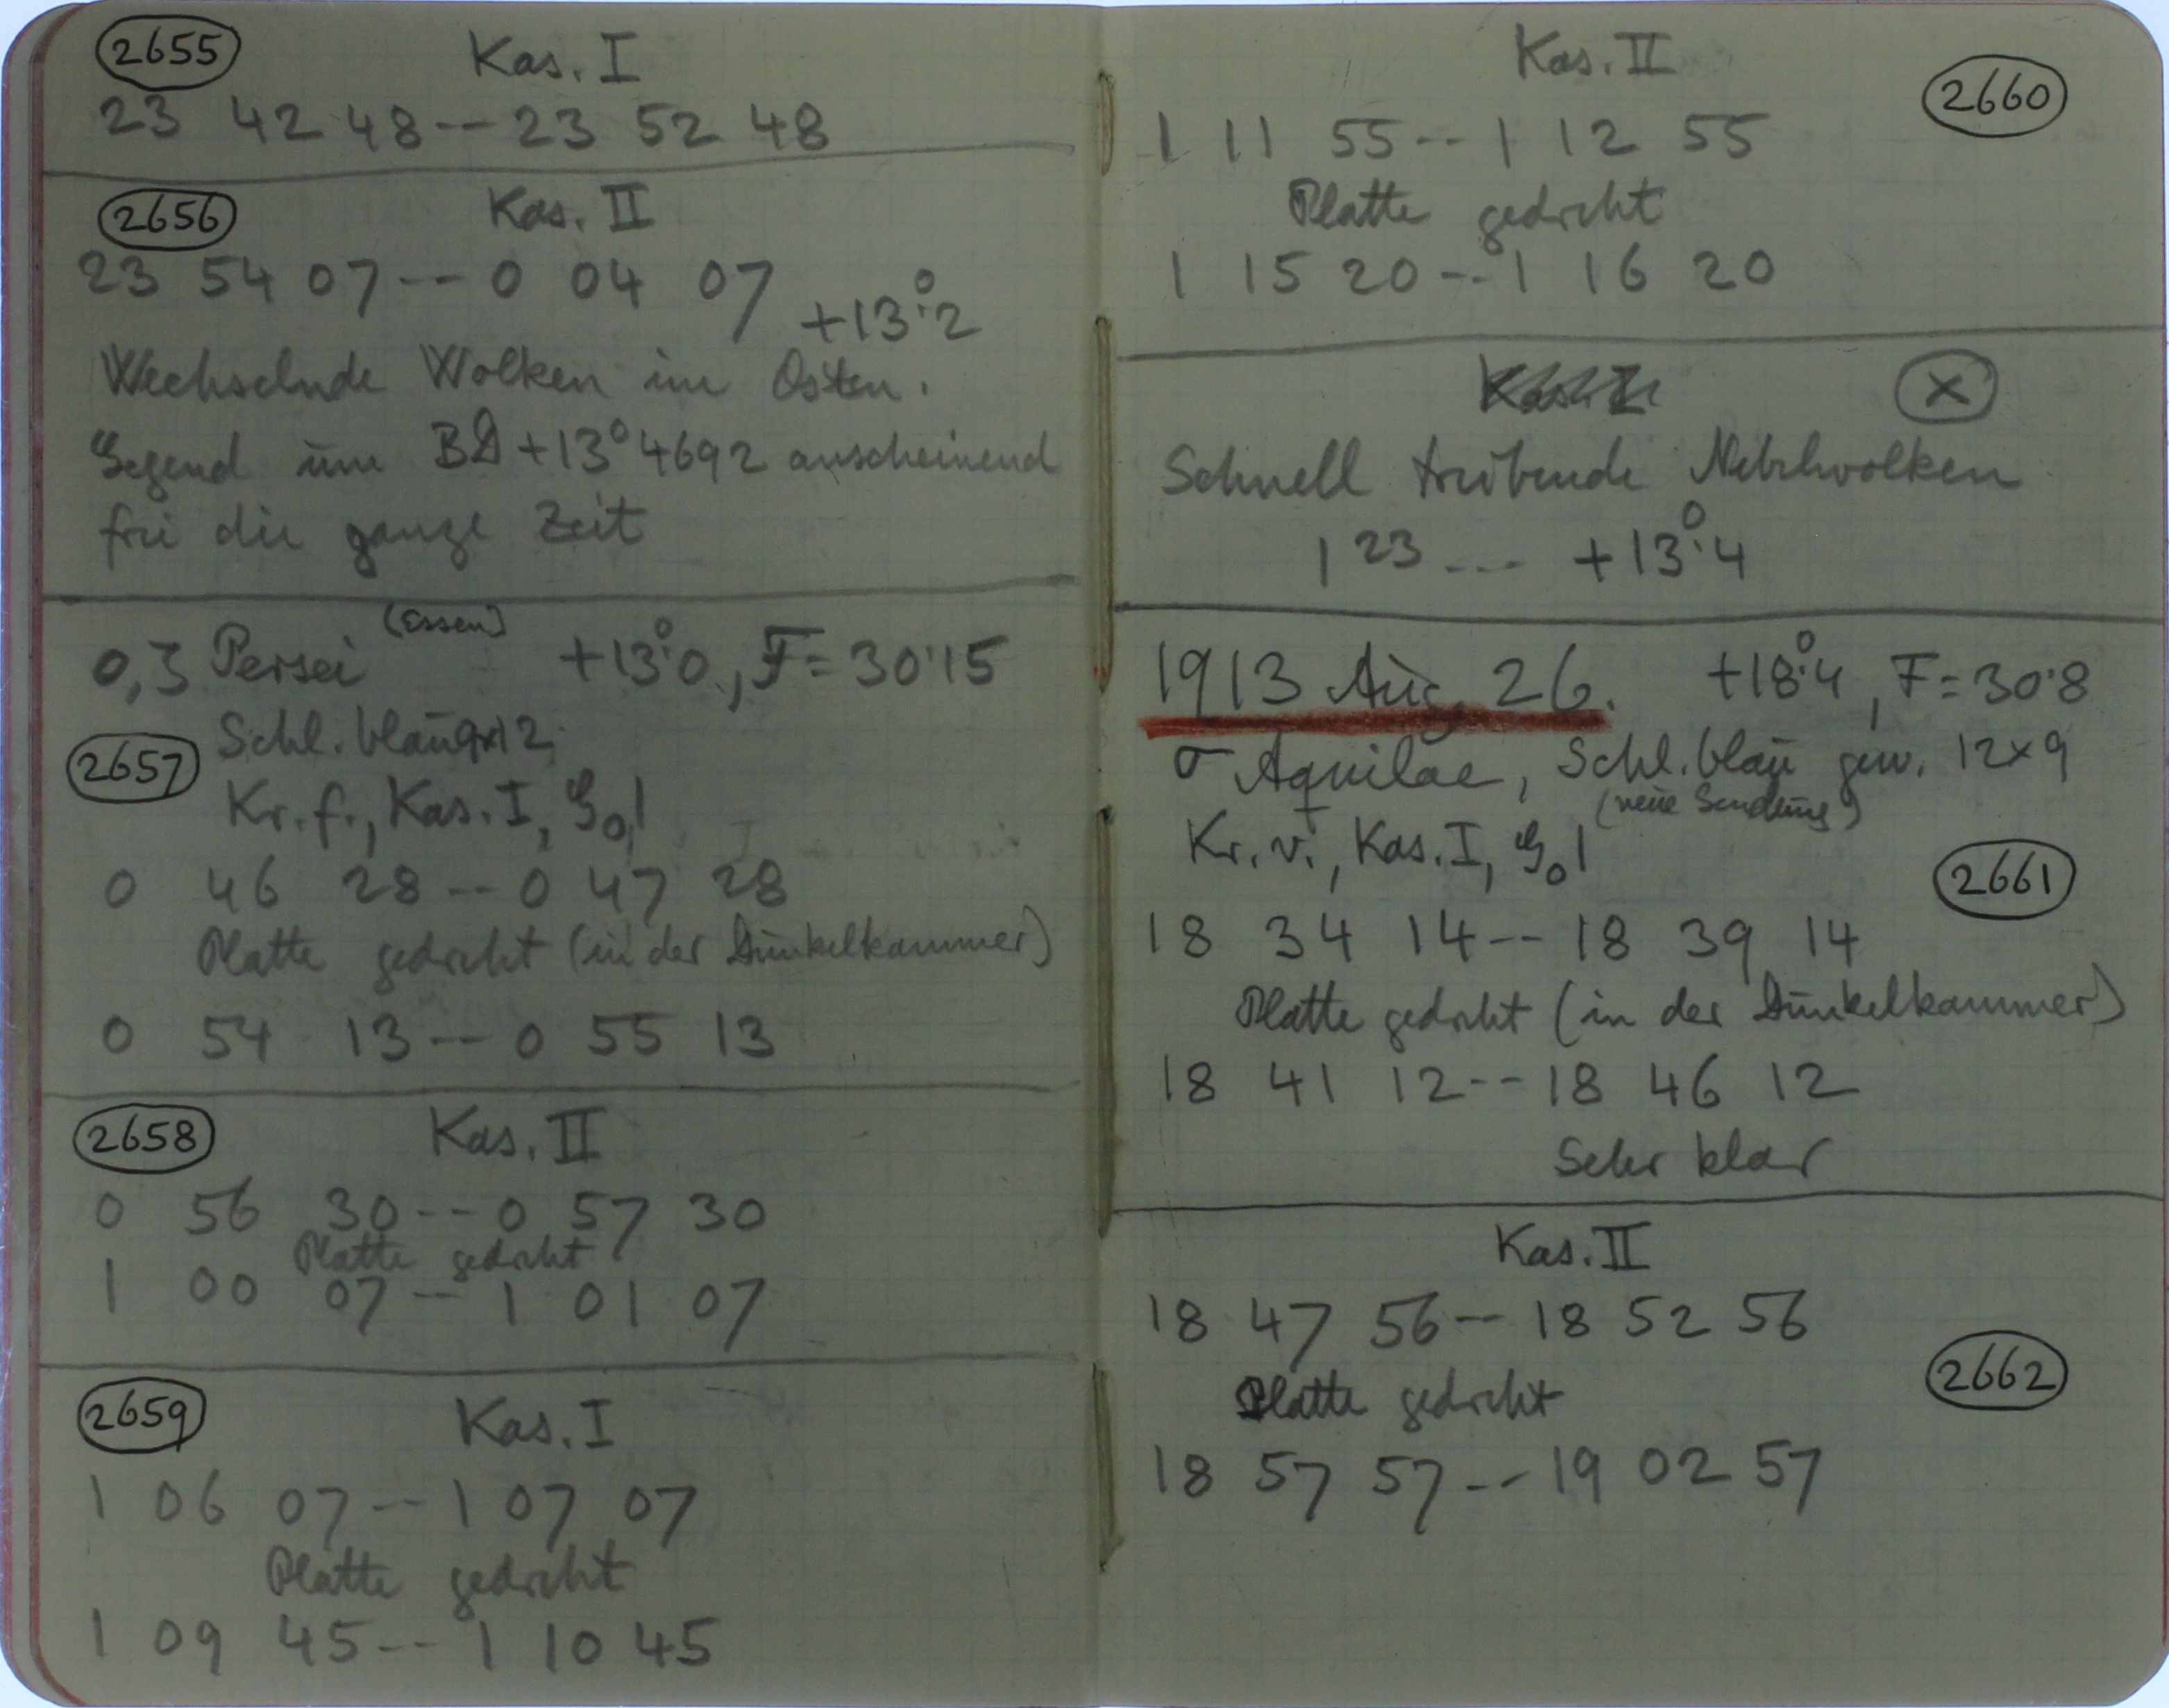 2655 Kas. I
23 42 48 -- 23 52 48
2656 Kas. II
23 54 07 -- 0 04 07 +13°.2
Wechselnde Wolken im Osten.
Gegend um BD+13°4692 anscheinend
frei die ganze Zeit
(Essen)
Persei +13°.0, F=30.15
2657 Schl. blau 9x12,
Kr. f., Kas. I, G₀1
0 46 28 -- 0 47 28
Platte gedreht (in der Dunkelkammer)
0 54 13 -- 0 55 13
2658 Kas. II
0 56 30 -- 0 57 30
Platte gedreht
1 00 07 -- 1 01 07
2659 Kas. I
1 06 07 -- 1 07 07
Platte gedreht
1 09 45 -- 1 10 45
Kas. II 2660
1 11 55 -- 1 12 55
Platte gedreht
1 15 20 -- 1 16 20
X
Schnell treibende Nebelwolken
1 23 ... +13°.4
1913 Aug. 26. +18°.4, F=30.8
σ Aquilae, Schl. blau gew. 12x9
(neue Sendung)
Kr. v., Kas. I, G₀1
2661
18 34 14 -- 18 39 14
Platte gedreht (in der Dunkelkammer)
18 41 12 -- 18 46 12
Sehr klar
Kas. II
18 47 56 -- 18 52 56
2662
Platte gedreht
18 57 57 -- 19 02 57